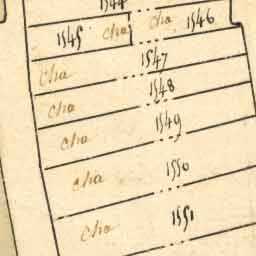 1544
1545 cha cha 1546
cha 1547
cha 1548
cha 1549
cha 1550
cha 1551